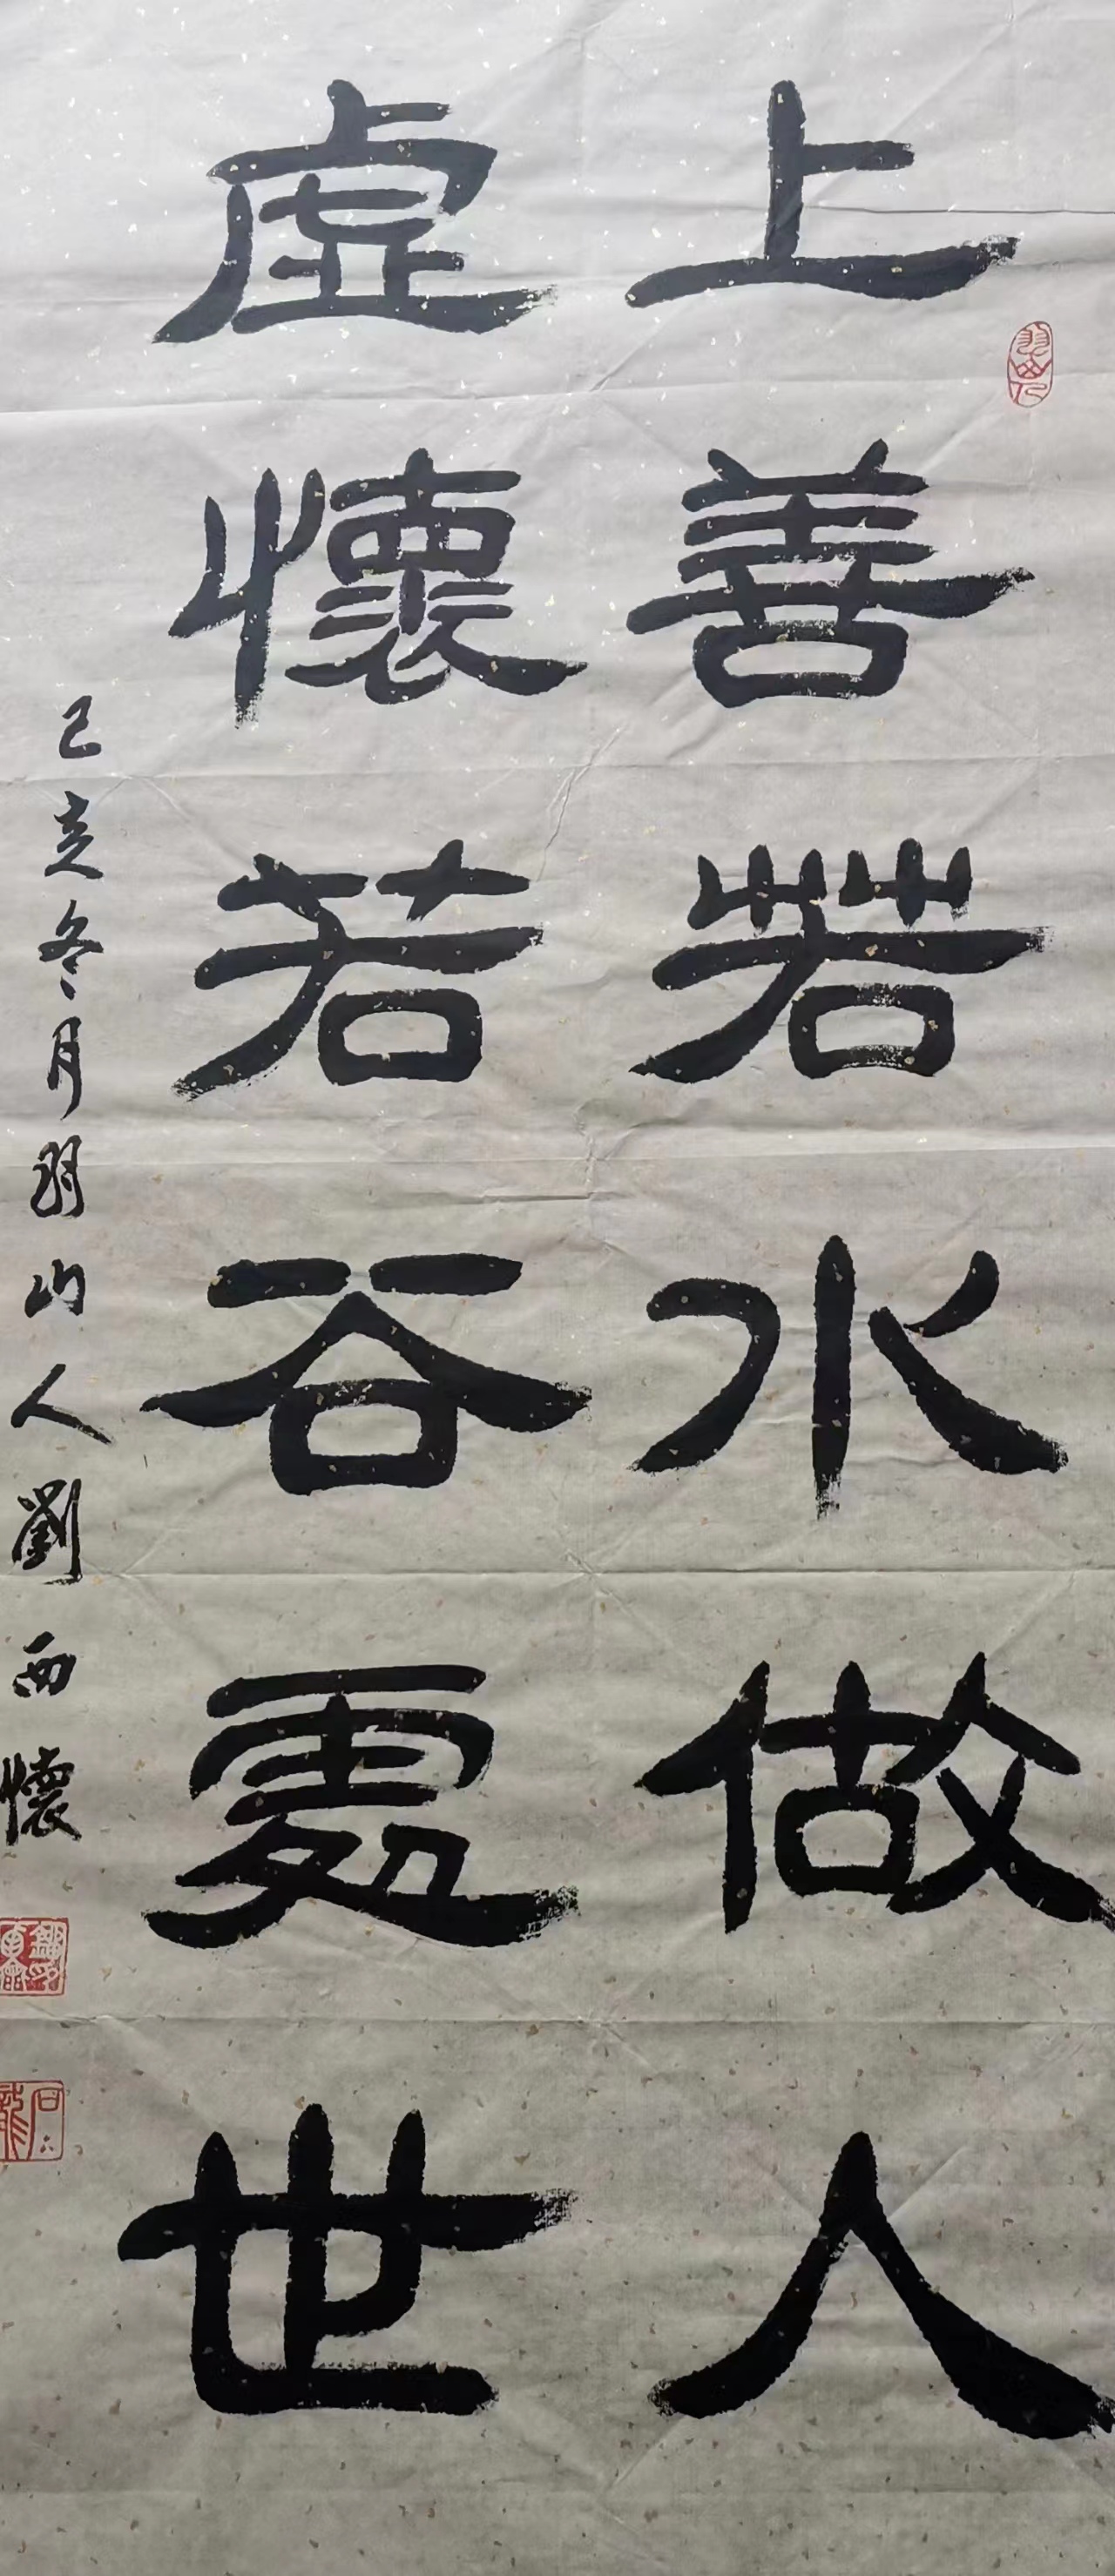 上善若水做人
虚懷若谷處世
己亥冬月羽山人劉西懷